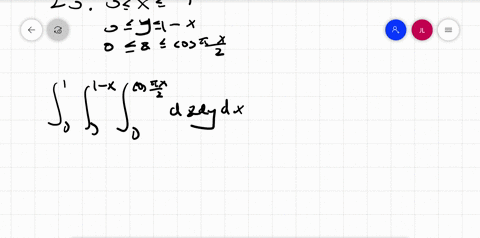 23. 0 ≤ x ≤ 1
0 ≤ y ≤ 1 - x
0 ≤ z ≤ cos πx/2
∫₀¹ ∫₀^(1-x) ∫₀^(cos πx/2) dz dy dx